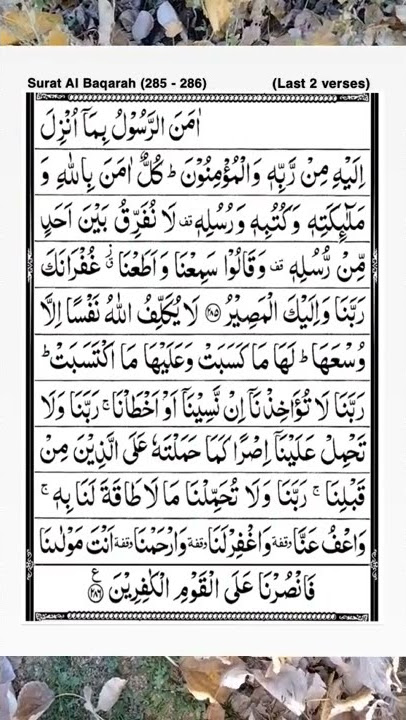 Surat Al Baqarah (285 - 286) (Last 2 verses)
اٰمَنَ الرَّسُوْلُ بِمَآ اُنْزِلَ
اِلَيْهِ مِنْ رَّبِّهٖ وَالْمُؤْمِنُوْنَ ؕ كُلٌّ اٰمَنَ بِاللّٰهِ وَ
مَلٰٓئِكَتِهٖ وَكُتُبِهٖ وَرُسُلِهٖ قف لَا نُفَرِّقُ بَيْنَ اَحَدٍ
مِّنْ رُّسُلِهٖ قف وَقَالُوْا سَمِعْنَا وَاَطَعْنَا ز ق غُفْرَانَكَ
رَبَّنَا وَاِلَيْكَ الْمَصِيْرُ ﴿۲۸۵﴾ لَا يُكَلِّفُ اللّٰهُ نَفْسًا اِلَّا
وُسْعَهَا ؕ لَهَا مَا كَسَبَتْ وَعَلَيْهَا مَا اكْتَسَبَتْ ؕ
رَبَّنَا لَا تُؤَاخِذْنَآ اِنْ نَّسِيْنَآ اَوْ اَخْطَاْنَا ۚ رَبَّنَا وَلَا
تَحْمِلْ عَلَيْنَآ اِصْرًا كَمَا حَمَلْتَهٗ عَلَى الَّذِيْنَ مِنْ
قَبْلِنَا ۚ رَبَّنَا وَلَا تُحَمِّلْنَا مَا لَا طَاقَةَ لَنَا بِهٖ ۚ
وَاعْفُ عَنَّا وقفة وَاغْفِرْ لَنَا وقفة وَارْحَمْنَا وقفة اَنْتَ مَوْلٰىنَا
فَانْصُرْنَا عَلَى الْقَوْمِ الْكٰفِرِيْنَ ﴿۲۸۶﴾ ع